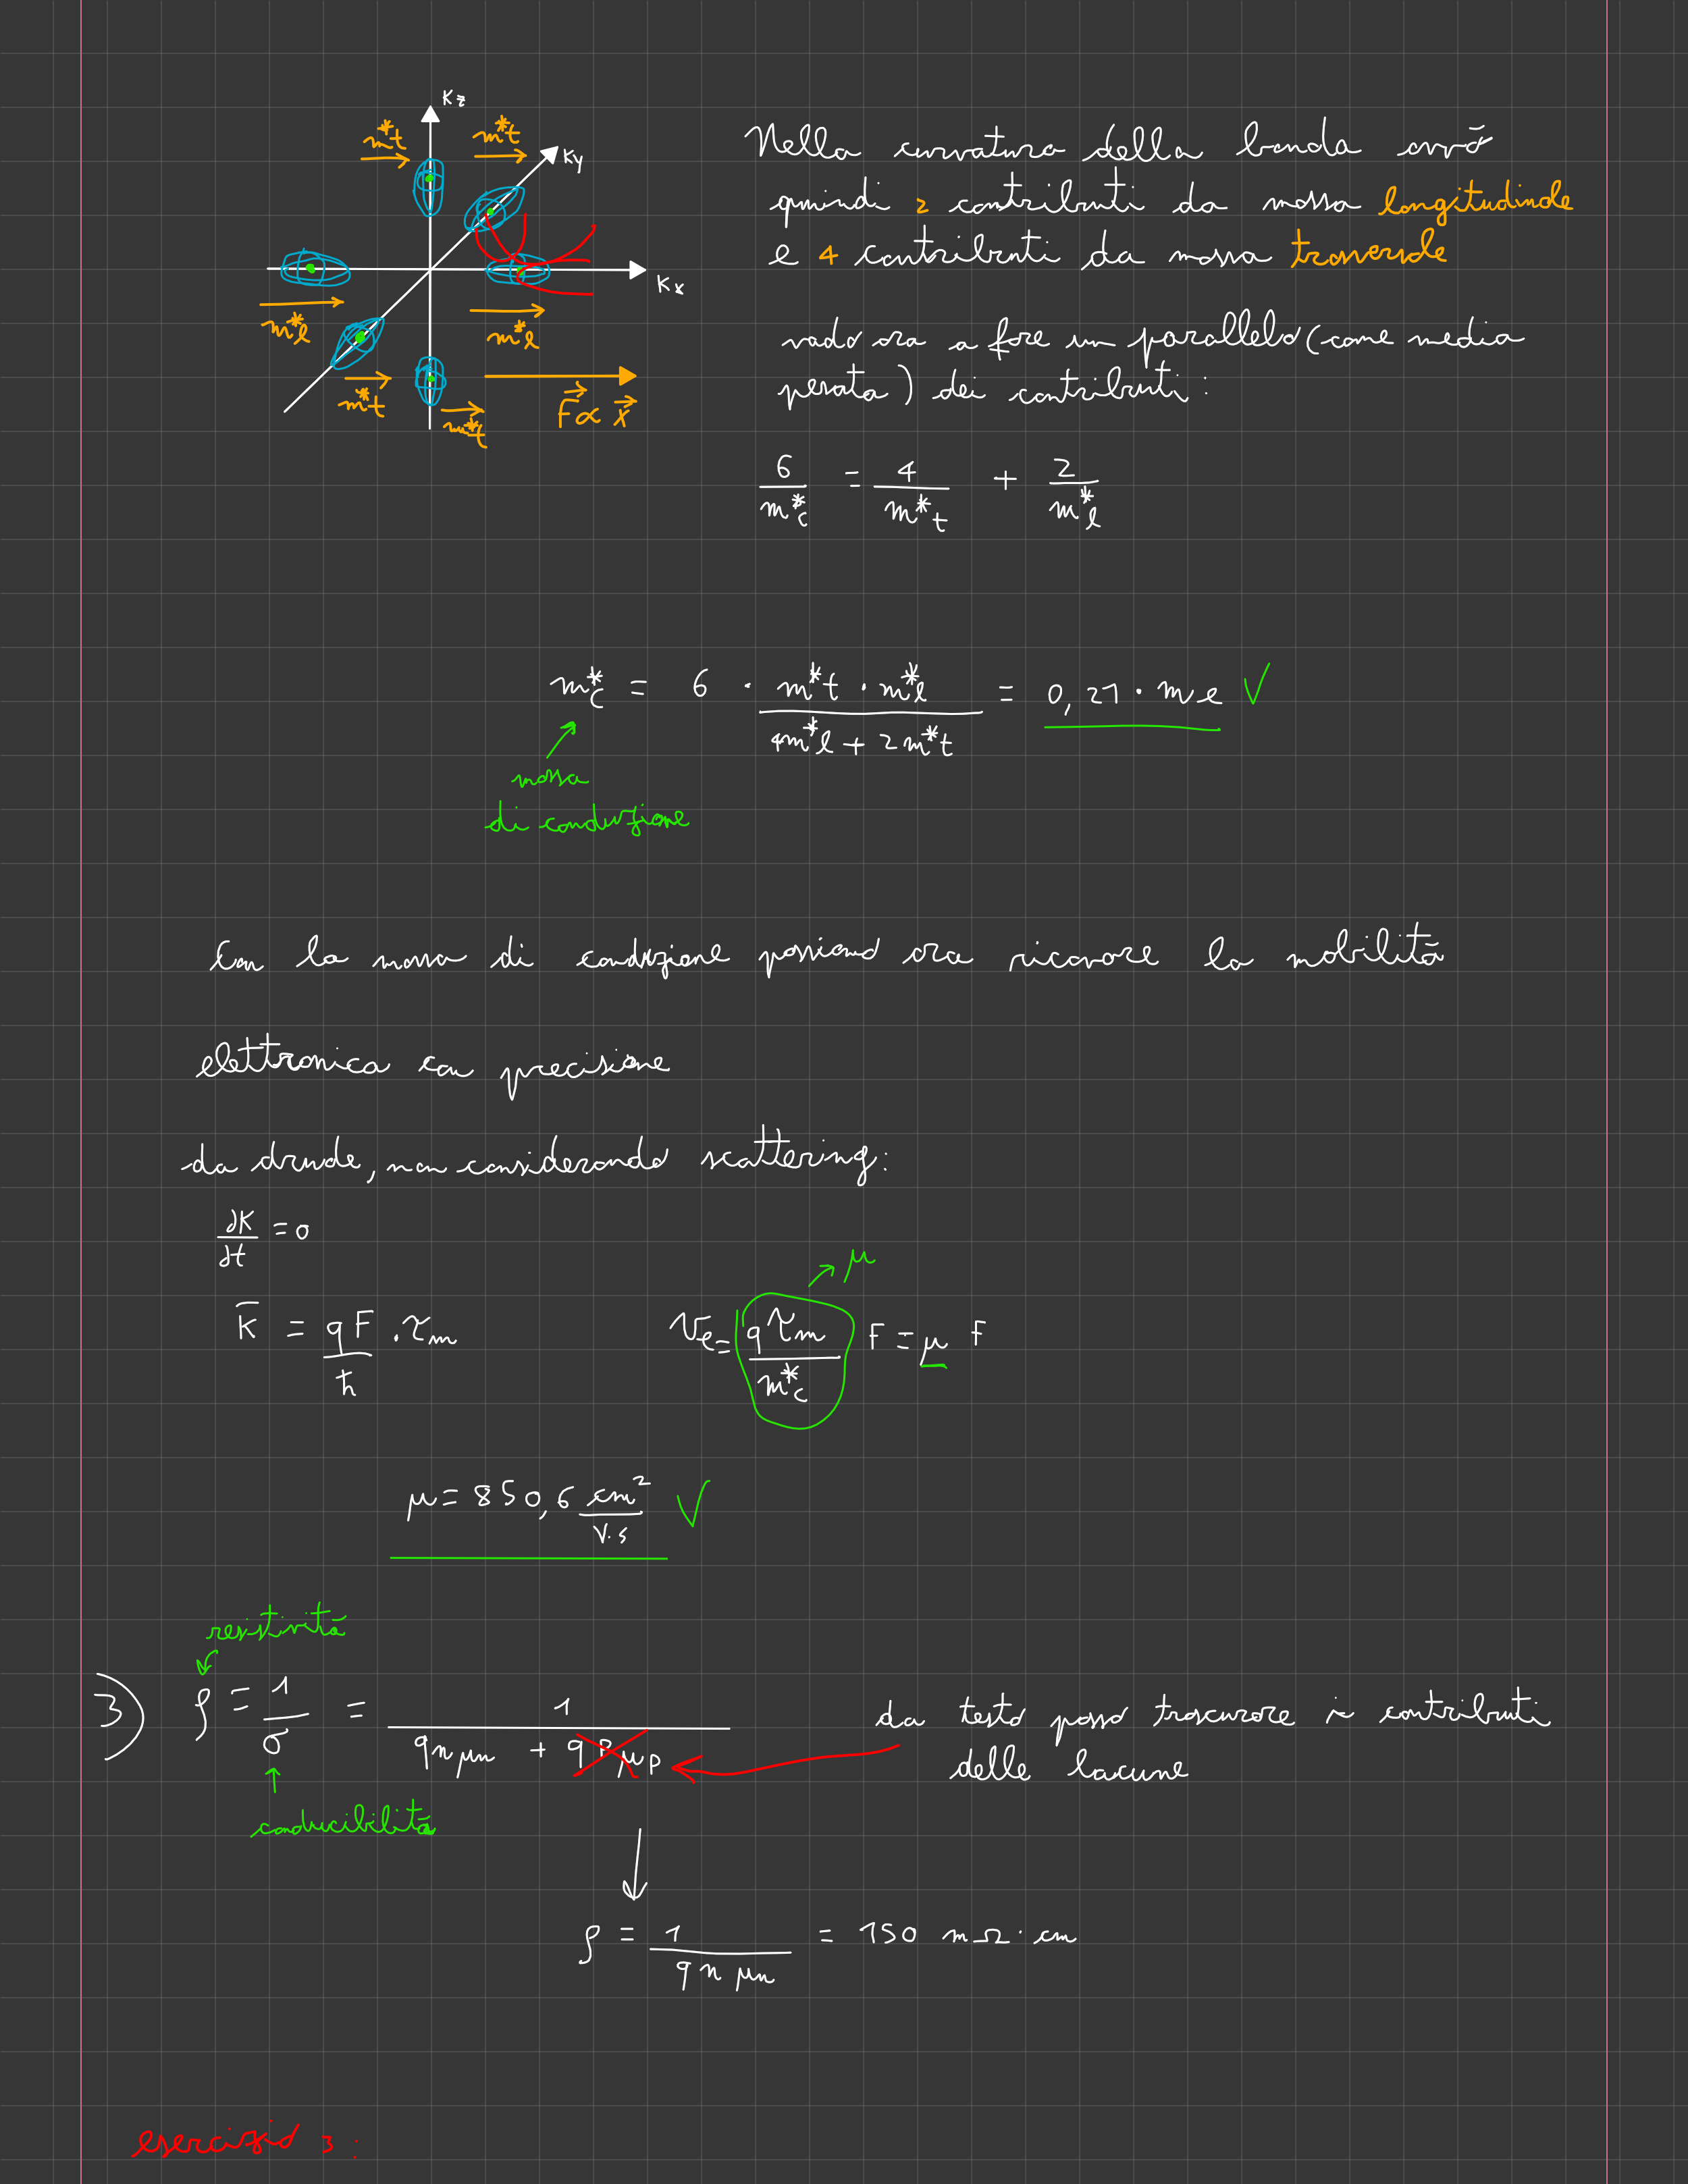 Kz
m*t
m*t
Ky
Kx
m*l
m*l
m*t
m*t
F ∝ x
Nella curvatura della banda avrò
quindi 2 contributi da massa longitudinale
e 4 contributi da massa trasversale
vado ora a fare un parallelo (come media
pesata) dei contributi:
6/m*c = 4/m*t + 2/m*l
m*c = 6 · m*t · m*l / (4m*l + 2m*t) = 0,27 · me ✓
massa
di conduzione
Con la massa di conduzione possiamo ora ricavare la mobilità
elettronica con precisione
da drude, non considerando scattering:
∂K/∂t = 0
K̄ = qF/ħ · τm
μ
= qτm/m*c F = μ F
μ = 850,6 cm²/V·s ✓
resistività
3) ρ = 1/σ = 1/(q n μn + q p μp)
da testo posso trascurare i contributi
delle lacune
conducibilità
ρ = 1/(q n μn) = 150 mΩ·cm
esercizio 3: